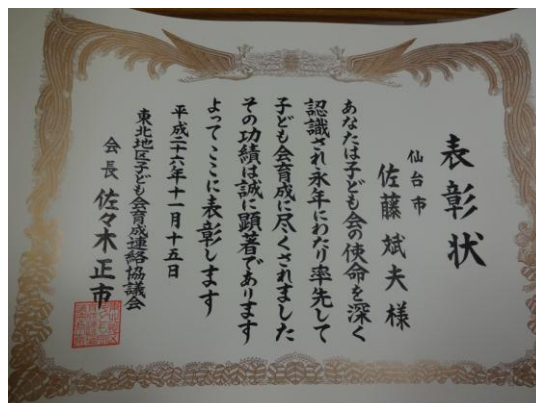 表彰状
仙台市
佐藤斌夫様
あなたは子ども会の使命を深く
認識され永年にわたり率先して
子ども会育成に尽くされました
その功績は誠に顕著であります
よってここに表彰します
平成二十六年十一月十五日
東北地区子ども会育成連絡協議会
会長 佐々木正市